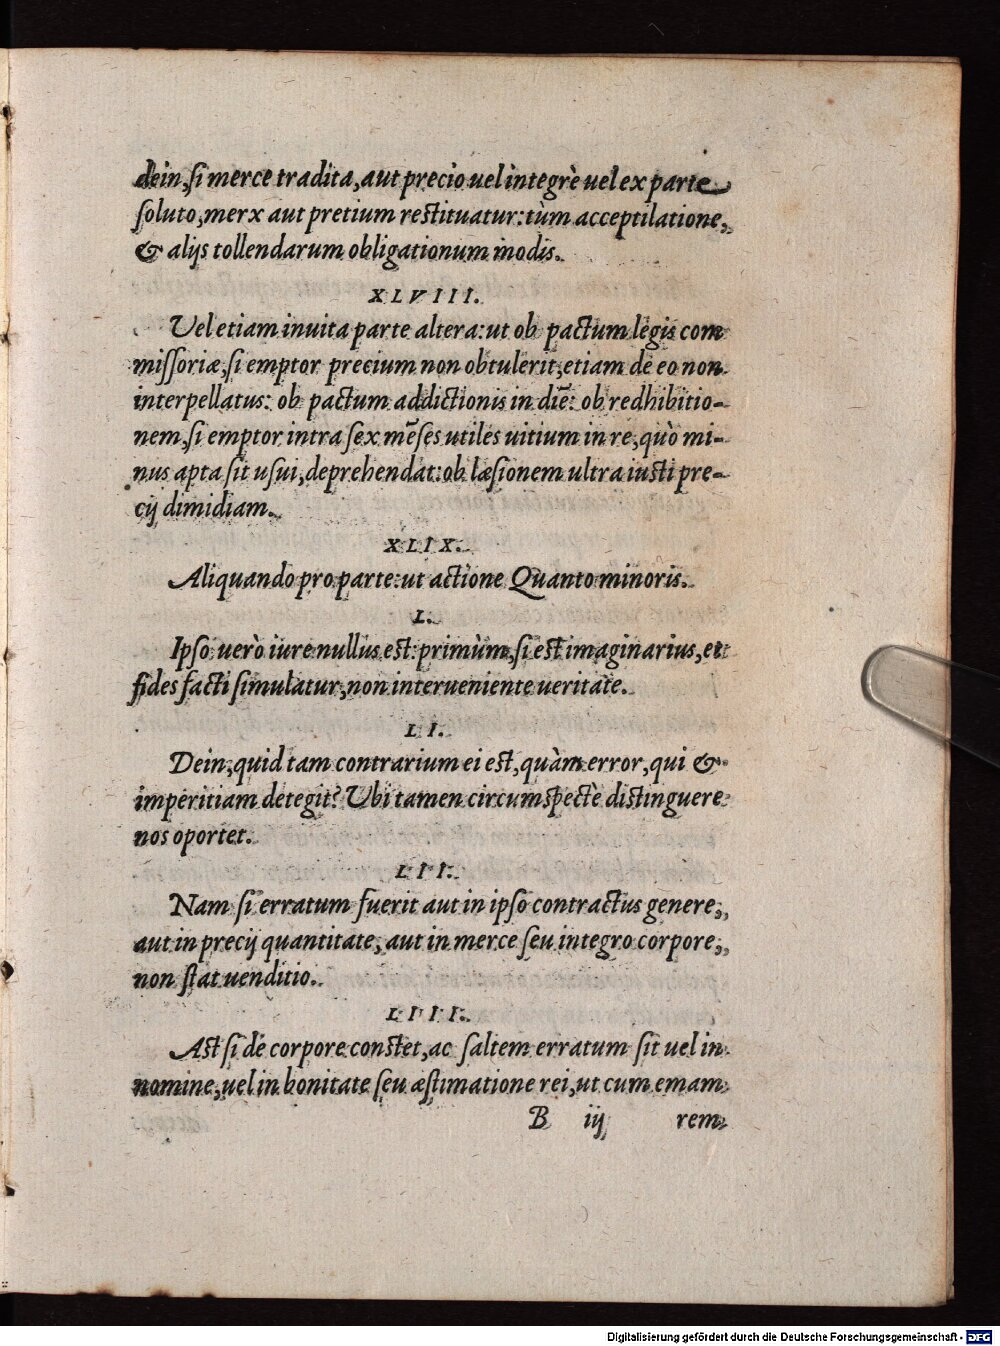 dein, si merce tradita, aut precio uel integrè uel ex parte
soluto, merx aut pretium restituatur: tùm acceptilatione,
& alijs tollendarum obligationum modis.
XLVIII.
Vel etiam inuita parte altera: ut ob pactum legis com
missoriæ, si emptor precium non obtulerit, etiam de eo non
interpellatus: ob pactum addictionis in diē: ob redhibitio-
nem, si emptor intra sex mēses utiles uitium in re, quò mi-
nus apta sit usui, deprehendat: ob læsionem ultra iusti pre-
cij dimidiam.
XLIX.
Aliquando pro parte: ut actione Quanto minoris.
L.
Ipso uerò iure nullus est: primùm, si est imaginarius, et
fides facti simulatur, non interueniente ueritate.
LI.
Dein, quid tam contrarium ei est, quàm error, qui &
imperitiam detegit? Vbi tamen circumspectè distinguere
nos oportet.
LII.
Nam si erratum fuerit aut in ipso contractus genere,
aut in precij quantitate, aut in merce seu integro corpore,
non stat uenditio.
LIII.
Ast si de corpore constet, ac saltem erratum sit uel in
nomine, uel in bonitate seu æstimatione rei, ut cum emam
B iij rem
Digitalisierung gefördert durch die Deutsche Forschungsgemeinschaft - DFG